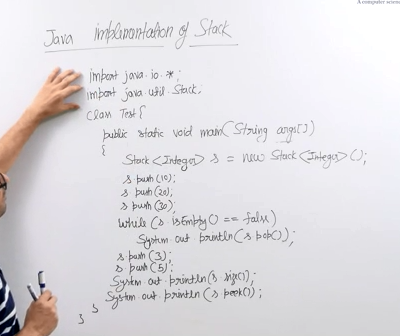 A computer screen
Java implimantation of Stack
import java.io.*;
import java.util.Stack;
class Test{
public static void main(String args[])
{
Stack<Integer> s = new Stack<Integer>();
s.push(10);
s.push(20);
s.push(30);
while (s.isEmpty() == false)
System.out.println(s.pop());
s.push(3);
s.push(5);
System.out.println(s.size());
System.out.println(s.peek());
}
}